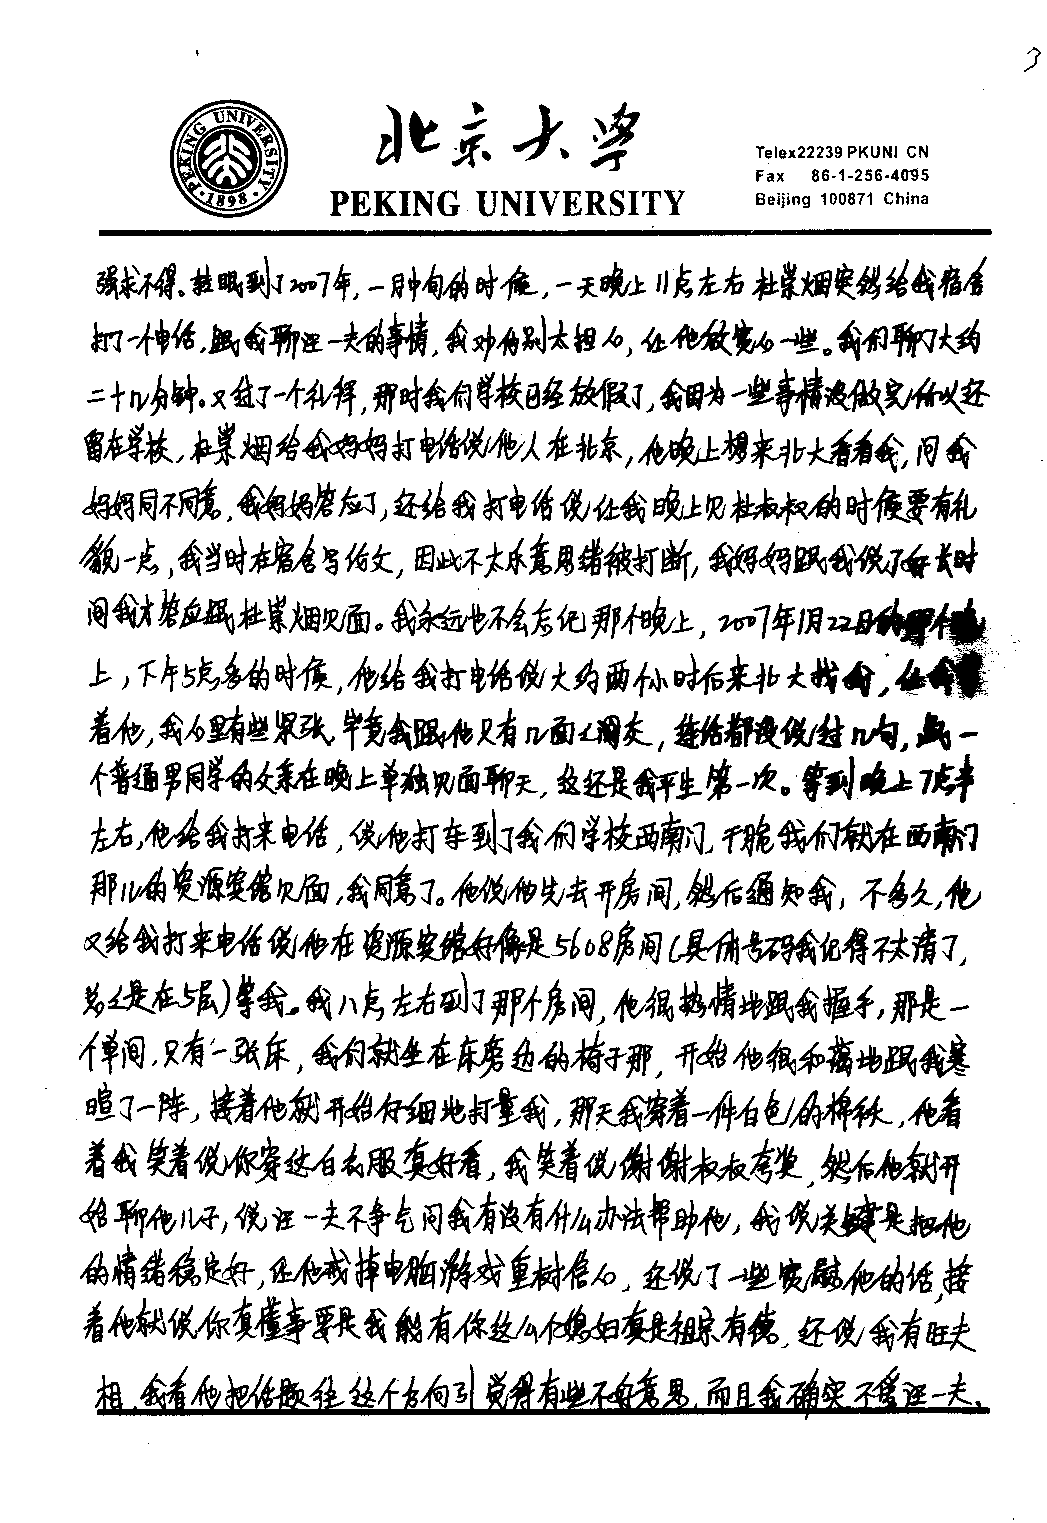 3
PEKING UNIVERSITY · 1898 ·
北京大学
PEKING UNIVERSITY
Telex22239 PKUNI CN
Fax 86-1-256-4095
Beijing 100871 China
强求不得。转眼到了2007年，一月中旬的时候，一天晚上11点左右杜崇烟突然给我宿舍
打了一个电话，跟我聊汪一夫的事情，我劝他别太担心，让他放宽心一些。我们聊了大约
二十几分钟。又过了一个礼拜，那时我们学校已经放假了，我因为一些事情没做完所以还
留在学校，杜崇烟给我妈妈打电话说他人在北京，他晚上想来北大看看我，问我
妈妈同不同意，我妈妈答应了，还给我打电话说让我晚上见杜叔叔的时候要有礼
貌一点，我当时在宿舍写论文，因此不太乐意思绪被打断，我妈妈跟我说了好长时
间我才答应跟杜崇烟见面。我永远也不会忘记那个晚上，2007年1月22日的那个晚
上，下午5点多的时候，他给我打电话说大约两个小时后来北大找我，让我等
着他，我心里有些紧张，毕竟我跟他只有几面之闻交，连话都没说过几句，跟一
个普通男同学的父亲在晚上单独见面聊天，这还是我平生第一次。等到晚上7点半
左右，他给我打来电话，说他打车到了我们学校西南门，干脆我们就在西南门
那儿的资源宾馆见面，我同意了。他说他先去开房间，然后通知我，不多久，他
又给我打来电话说他在资源宾馆好像是5608房间（具体号码我记得不太清了，
总之是在5层）等我。我八点左右到了那个房间，他很热情地跟我握手，那是一
个单间，只有一张床，我们就坐在床旁边的椅子那，开始他很和蔼地跟我寒
暄了一阵，接着他就开始仔细地打量我，那天我穿着一件白色的棉袄，他看
着我笑着说你穿这白衣服真好看，我笑着说谢谢叔叔夸奖，然后他就开
始聊他儿子，说汪一夫不争气问我有没有什么办法帮助他，我说关键是把他
的情绪稳定好，让他戒掉电脑游戏重树信心，还说了一些安慰他的话，接
着他就说你真懂事要是我能有你这么个媳妇真是祖宗有德，还说我有旺夫
相，我看他把话题往这个方向引觉得有些不好意思，而且我确实不爱汪一夫，